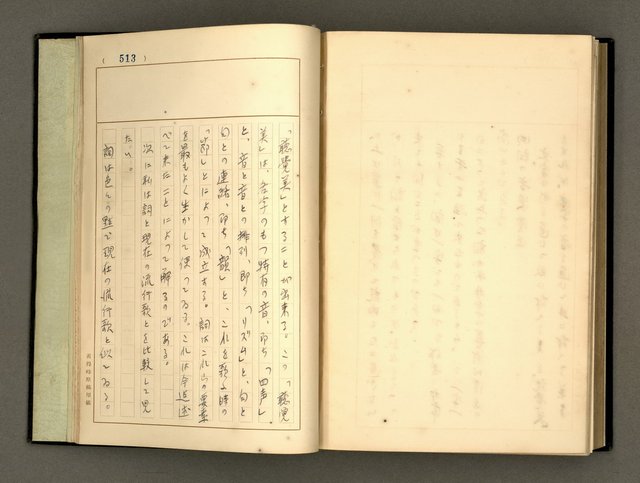 ( 513 )
「聴覚美」とすることが出来る。この「聴覚
美」は、各字のもつ特有の音、即ち「四声」
と、音と音との排列、即ち「リズム」と、句と
句との連結、即ち「韻」と、これを歌ふ時の
「節」とによって成立する。詞はこれらの要素
を最もよく生かして使ってゐる。これは今迄述
べて来たことによって解るのである。
次に私は詞と現在の流行歌とを比較して見
たい。
詞は色々の點で現在の流行歌と似てゐる。
原稿用紙